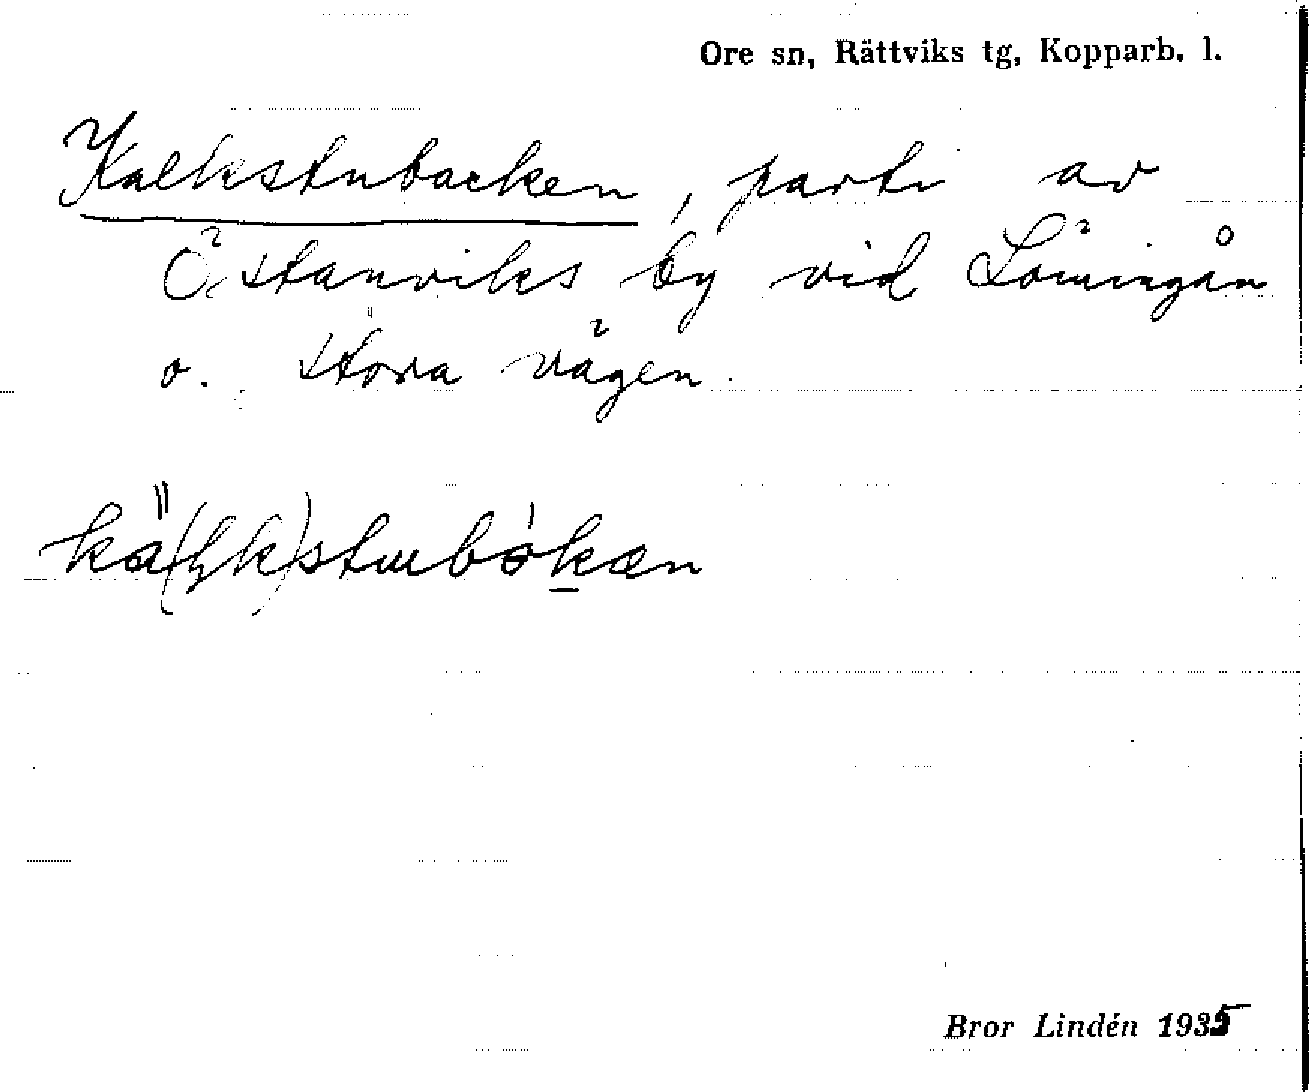 Ore sn, Rättviks tg, Kopparb. l.
Kalkstubacken, parti av
Östanviks by vid Löningån
o. stora vägen.
kä(ɫk)stubòkæn
Bror Lindén 1935